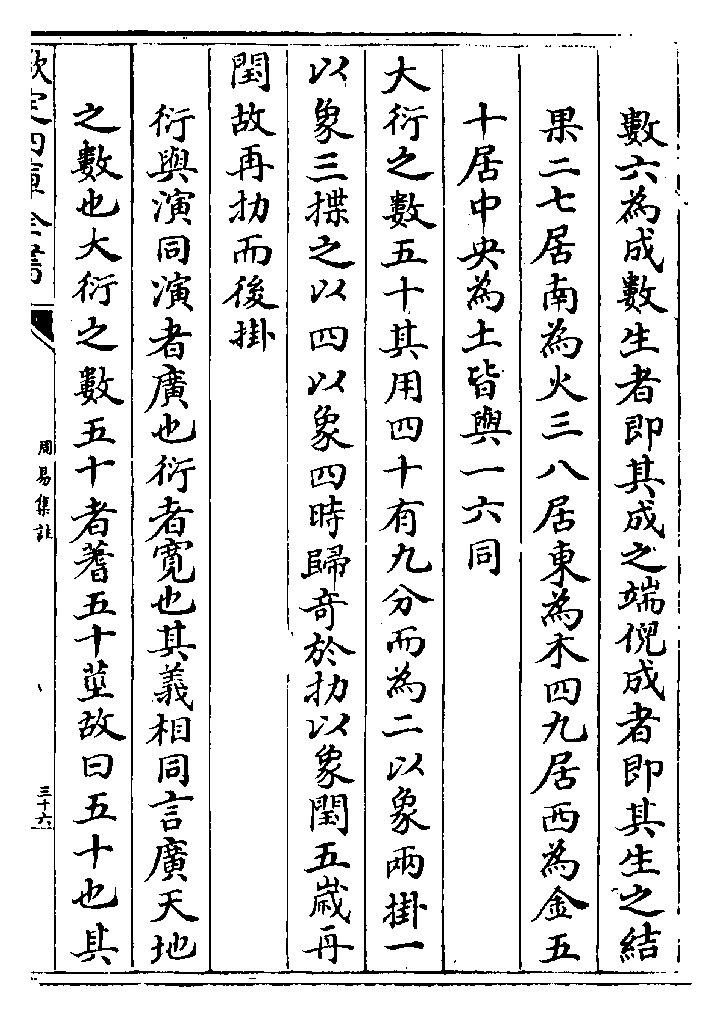 數六為成數生者即其成之端倪成者即其生之結
果二七居南為火三八居東為木四九居西為金五
十居中央為土皆與一六同
大衍之數五十其用四十有九分而為二以象兩掛一
以象三揲之以四以象四時歸奇於扐以象閏五歳再
閏故再扐而後掛
衍與演同演者廣也衍者寛也其義相同言廣天地
之數也大衍之數五十者蓍五十莖故曰五十也其
欽定四庫全書
周易集註
三十六